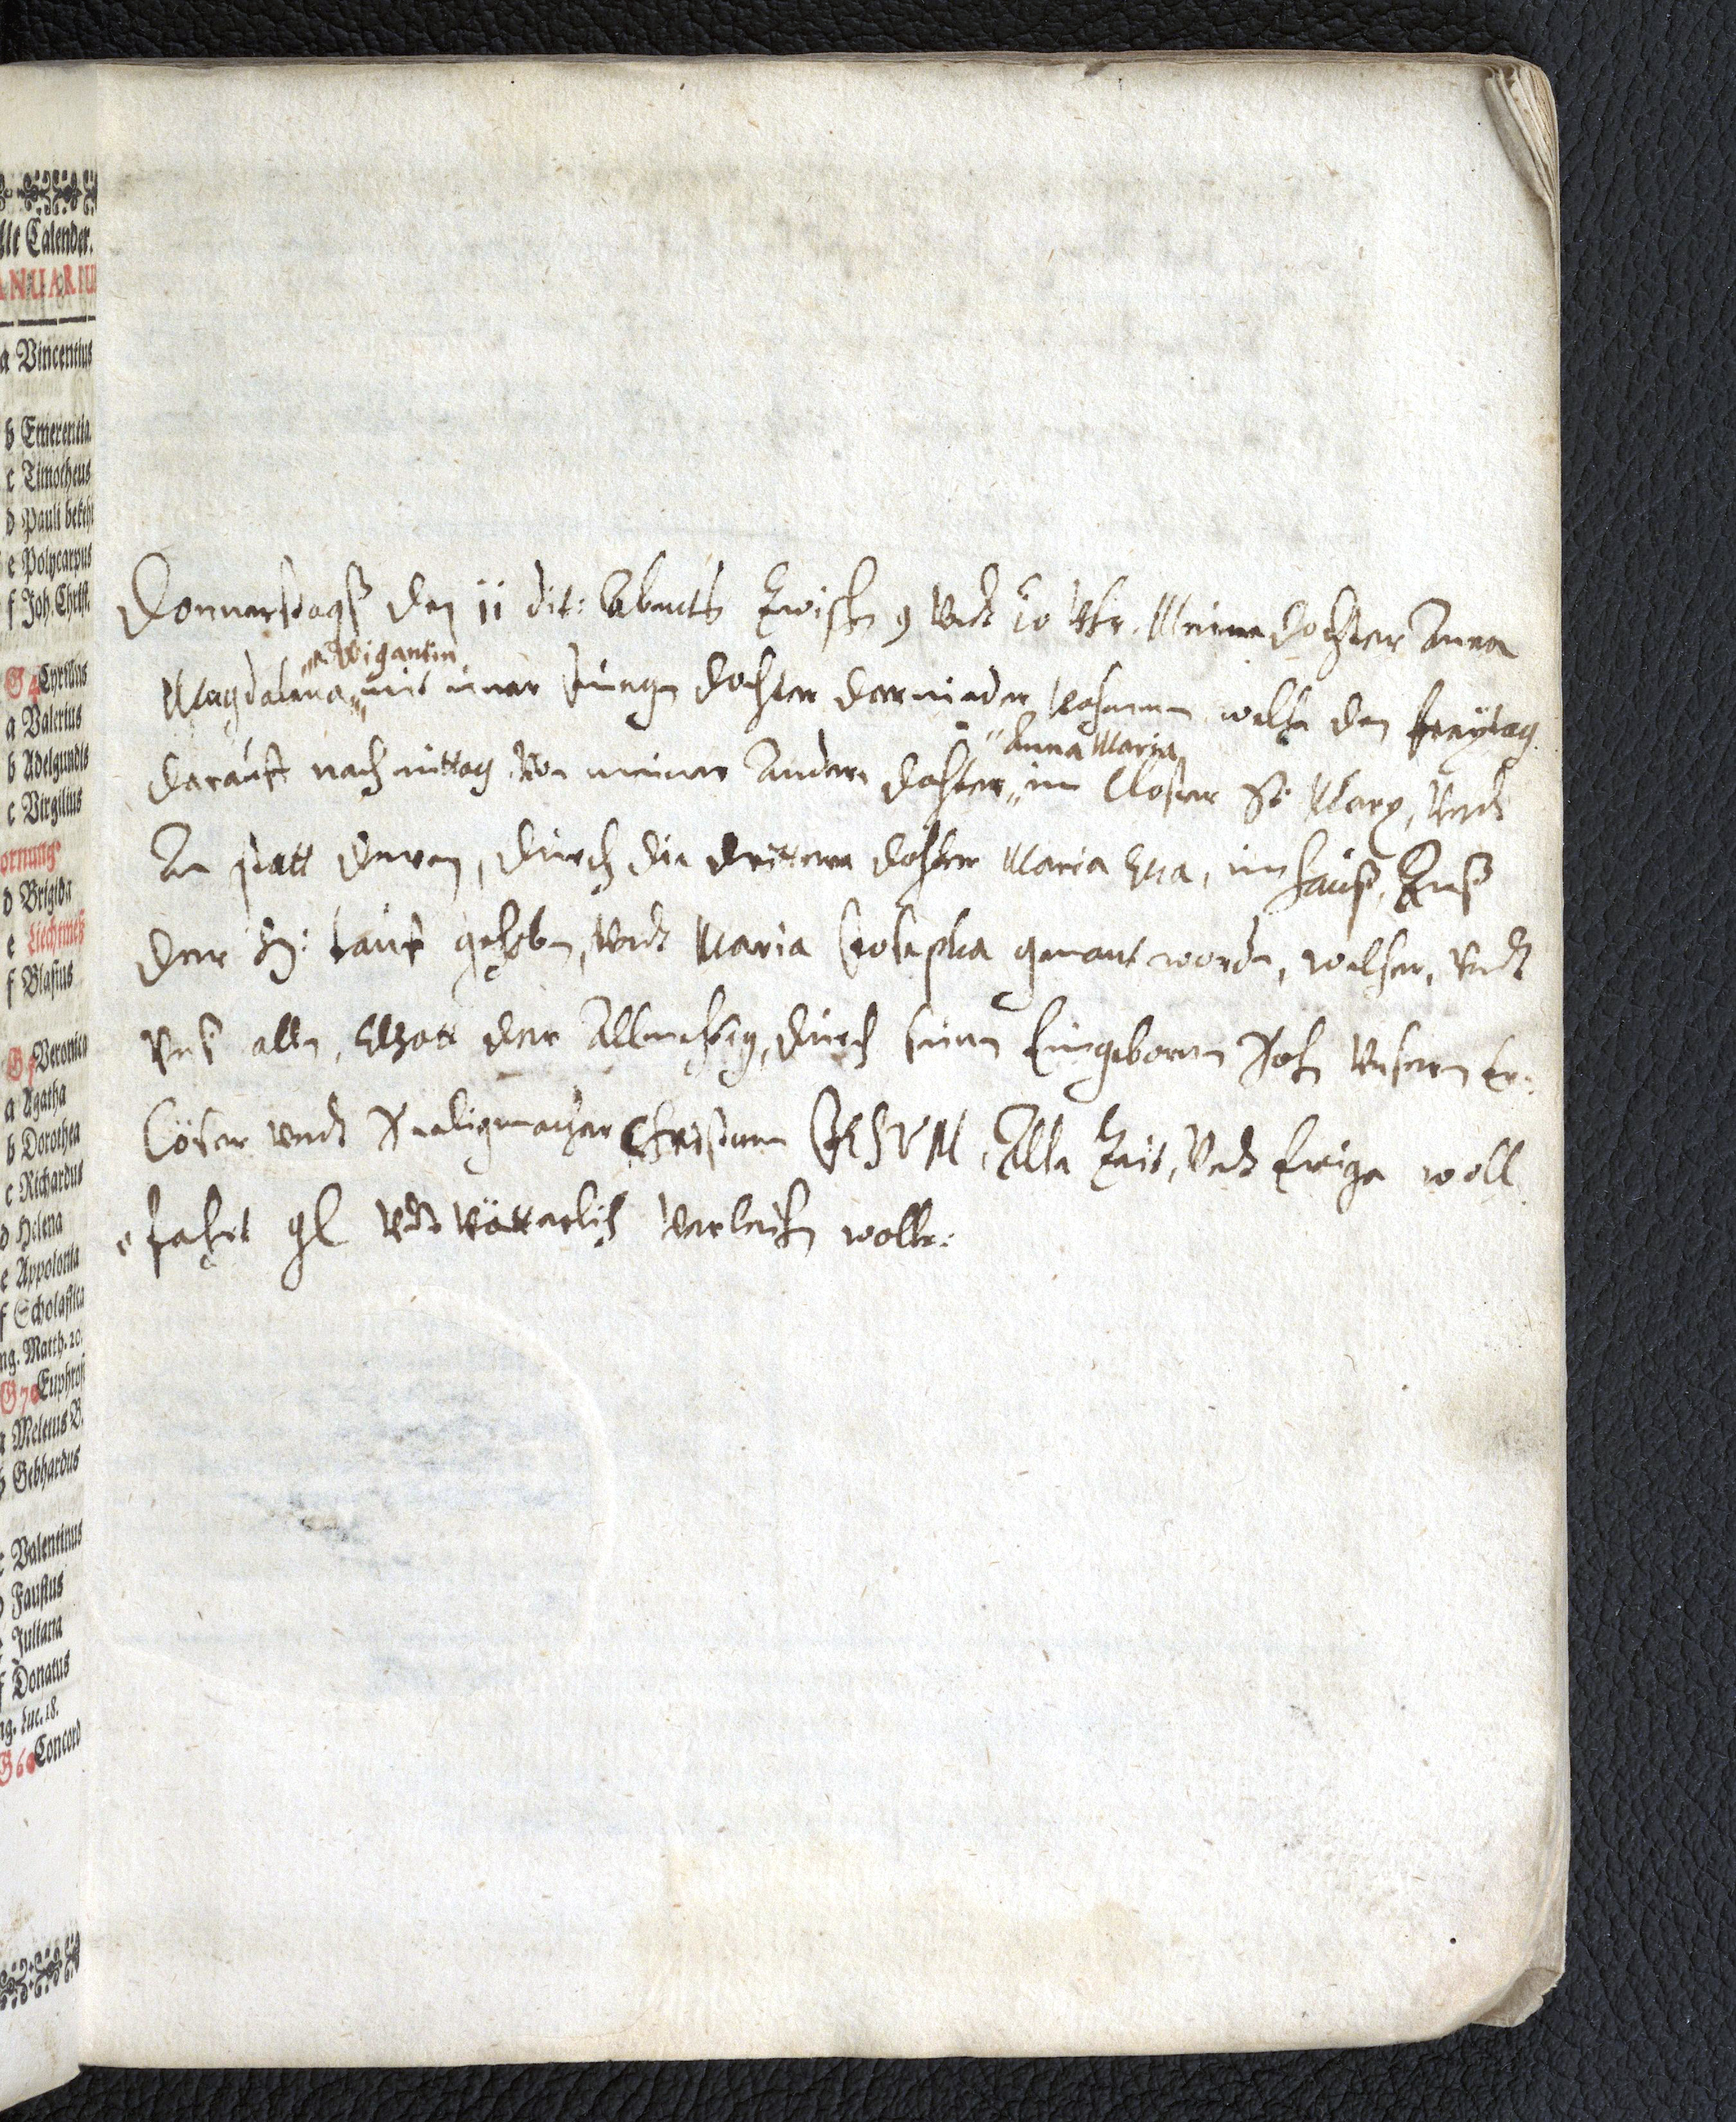 lte Calender.
ANUARIU
a Vincentius
b Emerentia
c Timotheus
d Pauli bekeh
e Polycarpus
f Joh. Chryst.
G 4 Cyrillus
a Valerius
b Adelgundis
c Virgilius
ornung.
d Brigida
e Liechtmeß
f Blasius
G 5 Veronica
a Agatha
b Dorothea
c Richardus
d Helena
e Appolonia
f Scholastica
ng. Matth. 20.
G 70 Euphros
a Meletus B.
b Gebhardus
c Valentinus
d Faustus
e Juliana
f Donatus
ng. Luc. 18.
G 60 Concord
Donnerstags den 11 dit: Abents Zwisch 9 Vndt 10 Vhr. Meine dochter Anna
Wigantin
Magdalena mit einer Jungen dochter dernieder kohmmen welche den freÿtag
Anna Maria
darauff nachmittag Von meiner Andern dochter im Closter St Marx, Vndt
An statt deren, durch die drittern dochter Maria Eva, im hauß, Auß
der H: tauf gehoben, Vndt Maria Josepha genant worden, welcher, Vndt
Vnß allen, Gott der Allmechtig, durch seinen Eingebornen Sohn Vnsern Er-
Löser Vndt Seeligmacher Christum JESVM, Alle Zeit, Vndt Ewige woll
fahrt gl Vndt Vätterlich Verleihen wolle: